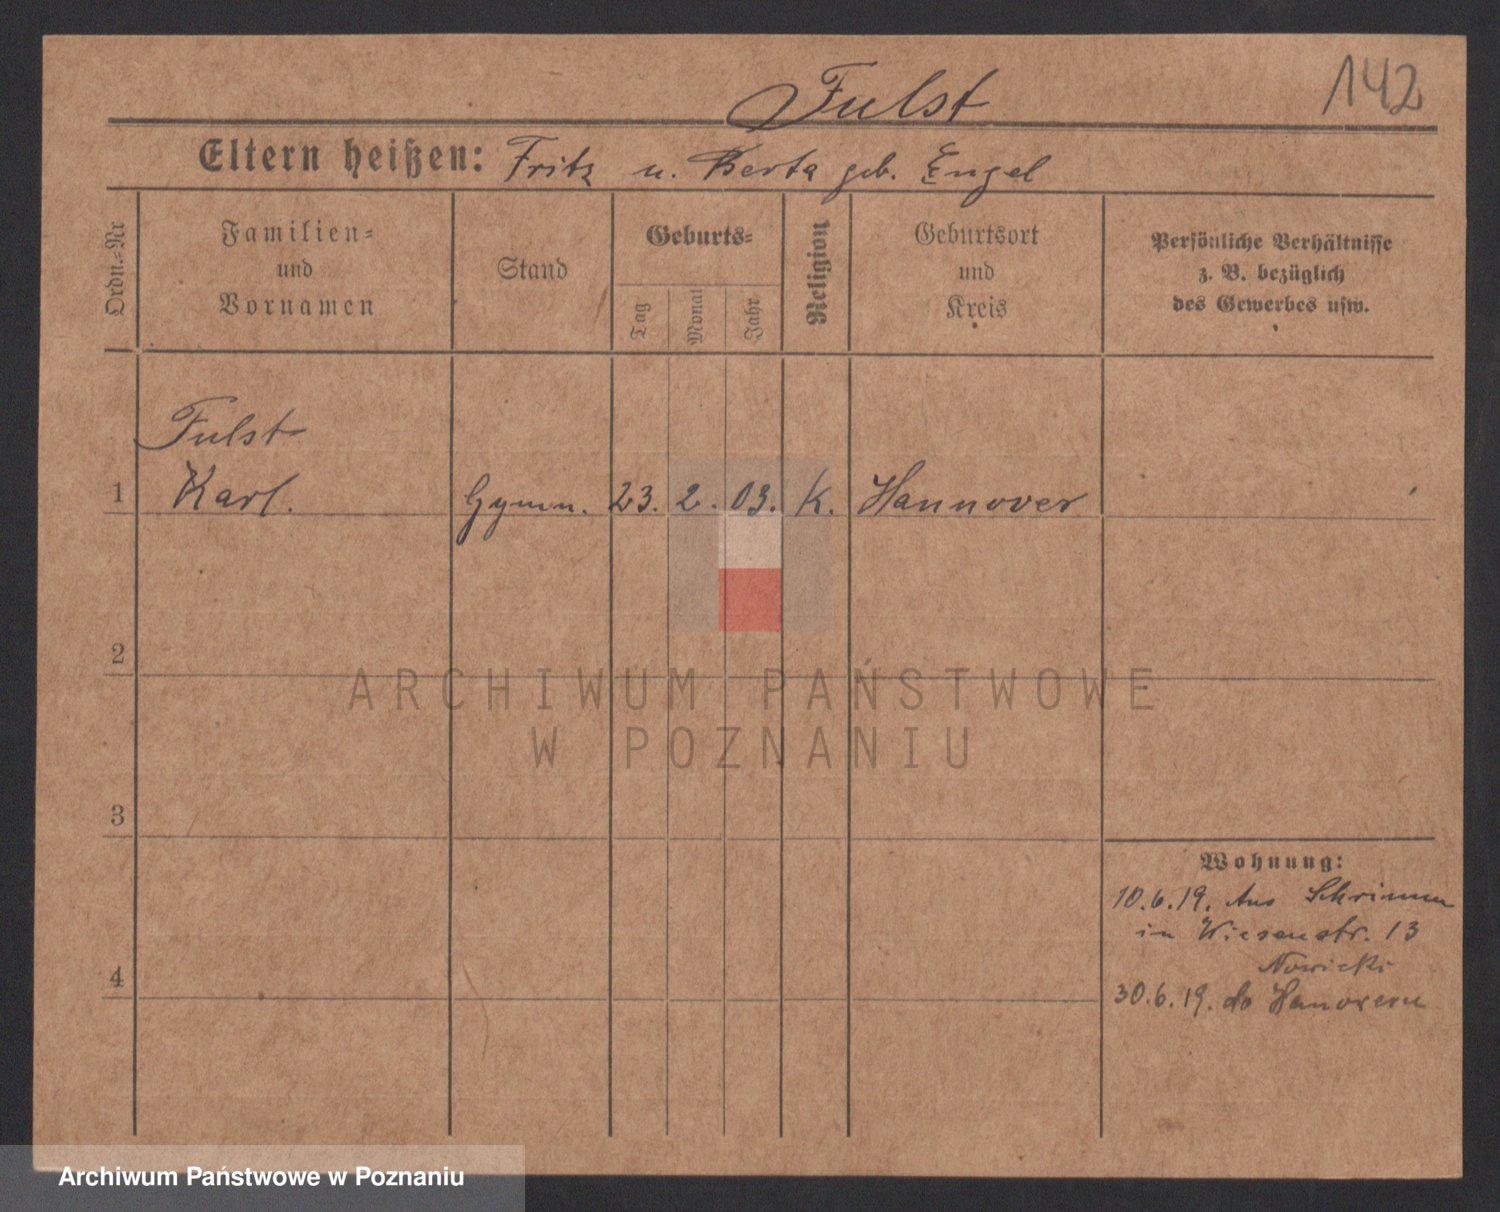 142
Fulst
Eltern heißen: Fritz u. Berta geb. Engel
Ordn.-Nr
Familien-
und
Vornamen
Stand
Geburts-
Tag
Monat
Jahr
Religion
Geburtsort
und
Kreis
Persönliche Verhältnisse
z. B. bezüglich
des Gewerbes usw.
Fulst
1 Karl. Gymn. 23. 2. 03. K. Hannover
2
ARCHIWUM PAŃSTWOWE
W POZNANIU
3
4
Wohnung:
10.6.19. Aus Schrimm
in Wiesenstr. 13
Nowicki
30.6.19. do
Archiwum Państwowe w Poznaniu